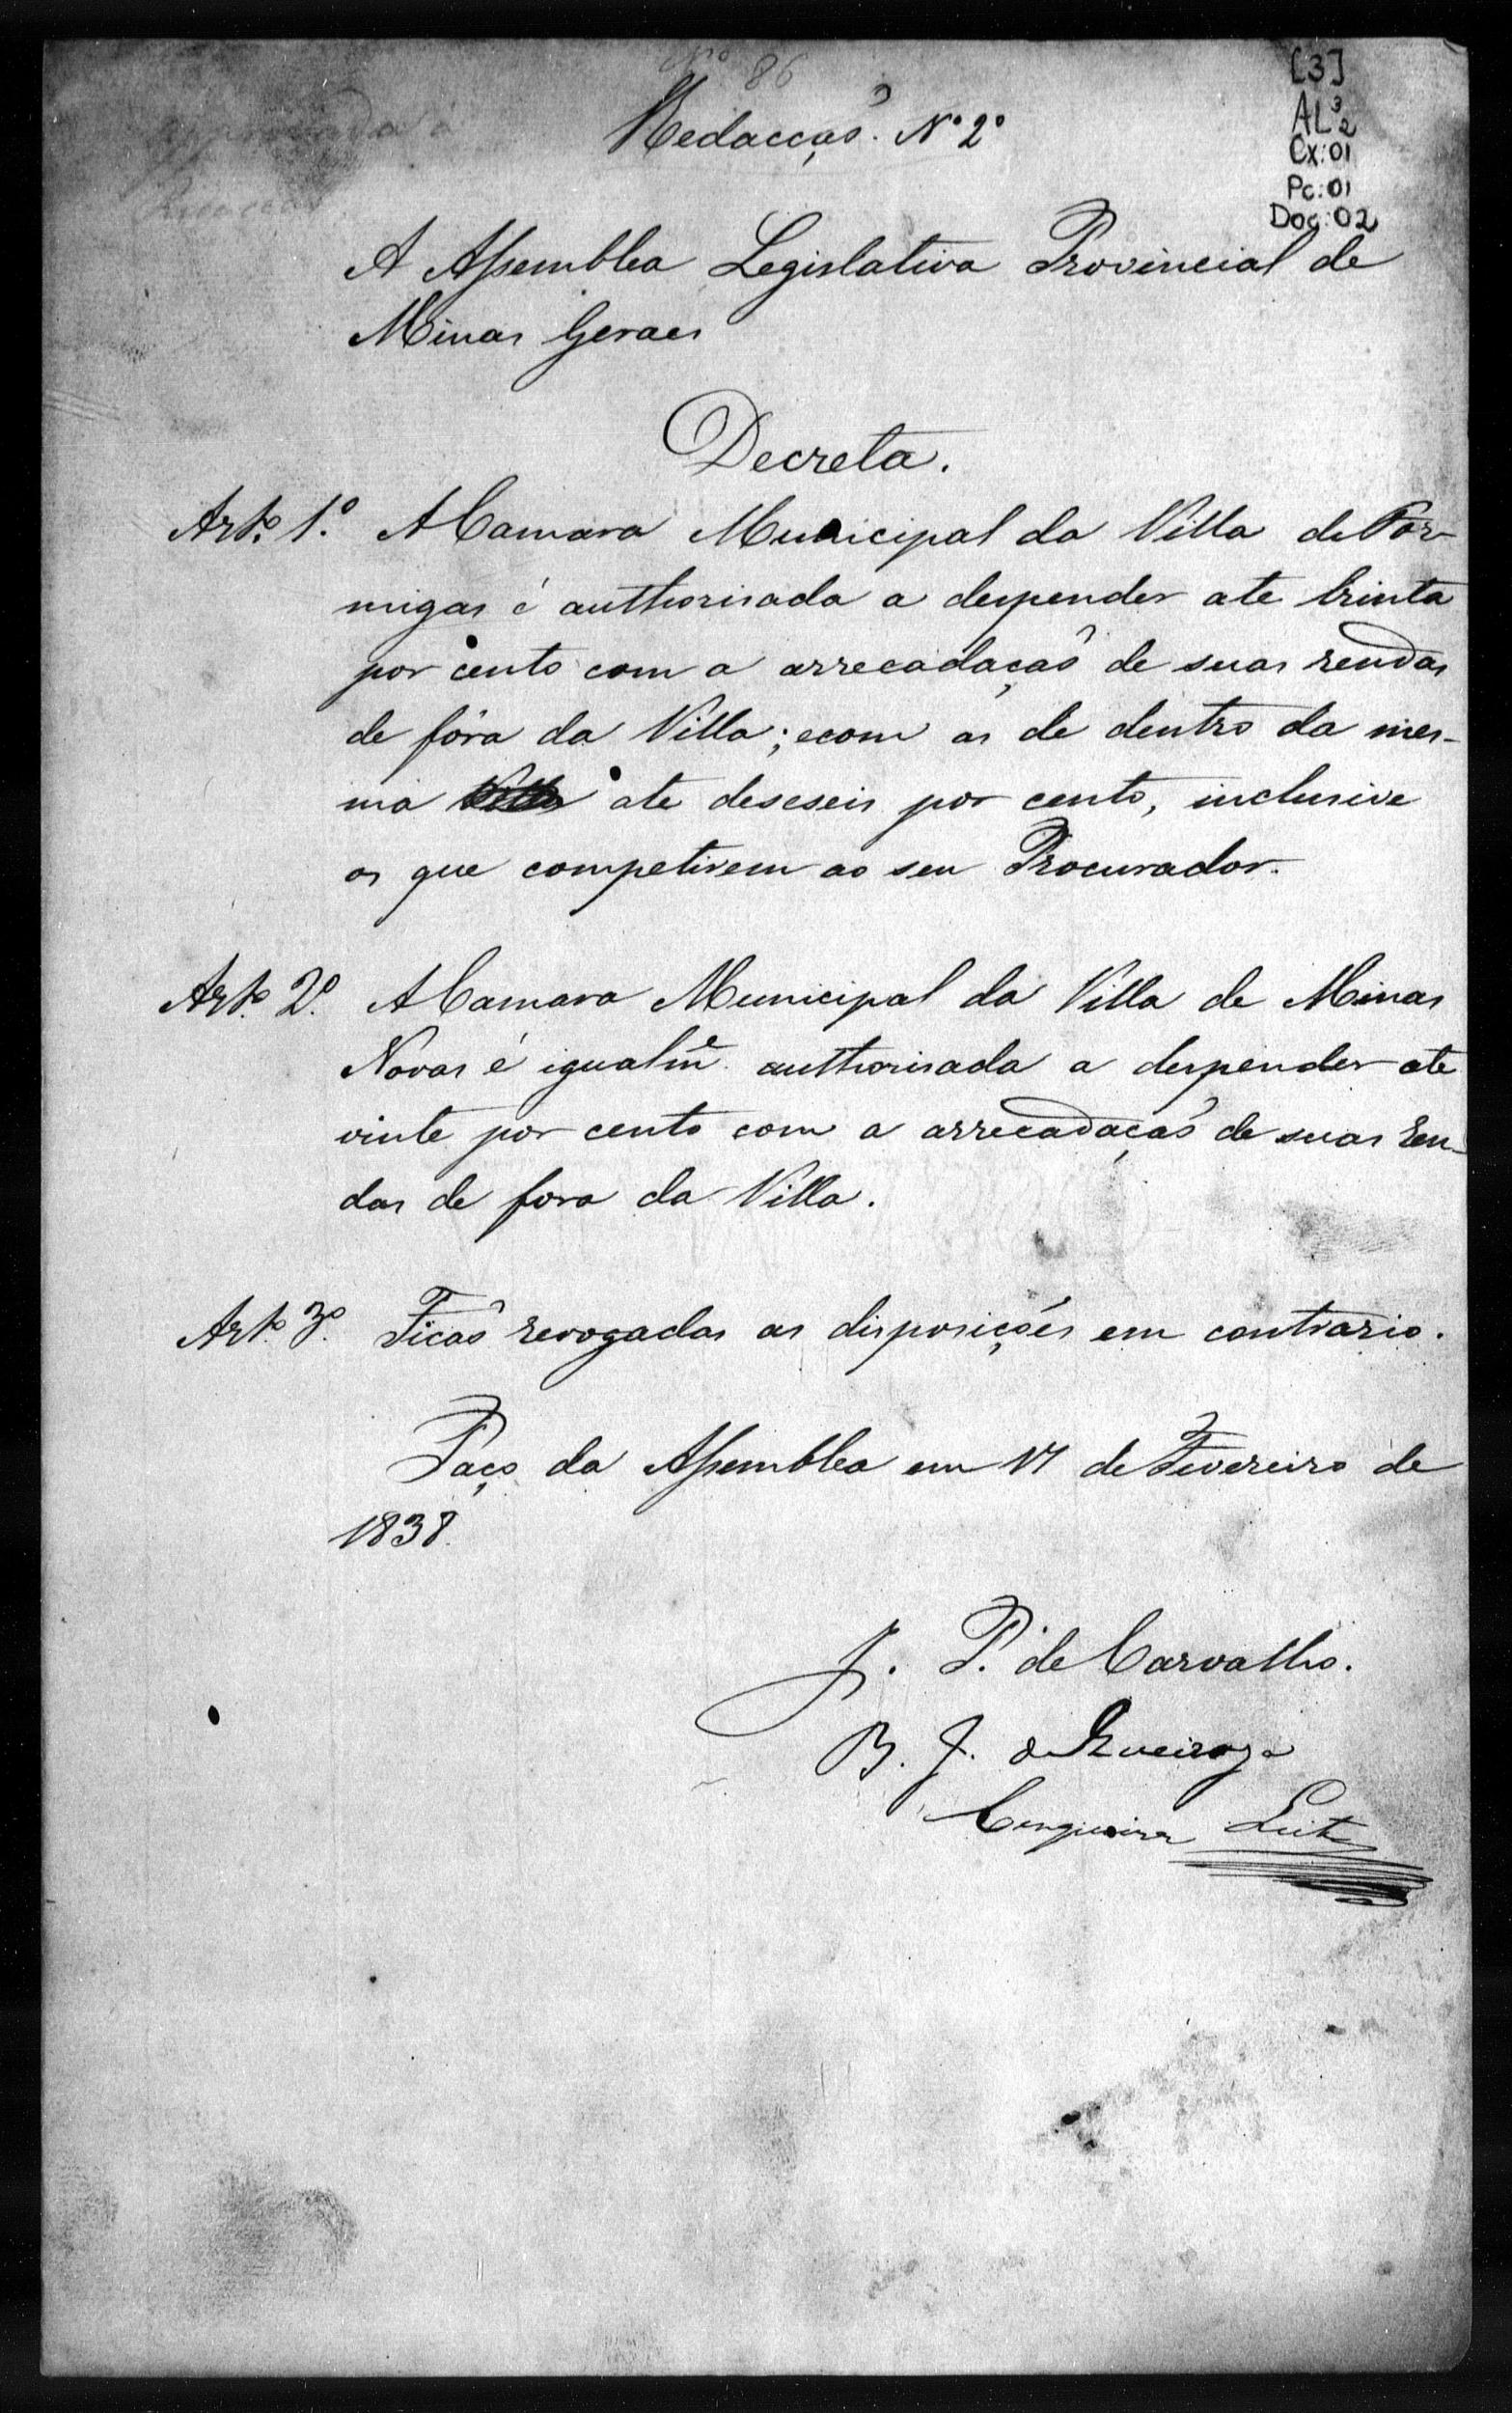 Nº 86
[3]
AL³2
Cx:01
Pc:01
Doc:02
Redacçaõ. Nº 2º
A Assemblea Legislativa Provincial de
Minas Geraes
Decreta.
Artº 1º. A Camara Municipal da Villa de For-
migas é authorisada a despender ate trinta
por cento com a arrecadaçaõ de suas rendas
de fóra da Villa; e com as de dentro da mes-
ma Villa ate deseseis por cento, inclusive
os que competirem ao seu Procurador.
Artº 2º. A Camara Municipal da Villa de Minas
Novas é igualmᵉ. authorisada a despender ate
vinte por cento com a arrecadaçaõ de suas ren-
das de fora da Villa.
Artº 3º. Ficaõ revogadas as disposiçoẽs em contrario.
Paço da Assemblea em 17 de Fevereiro de
1838.
J. P. de Carvalho.
B. J. de Queiroga
Cerqueira Leite